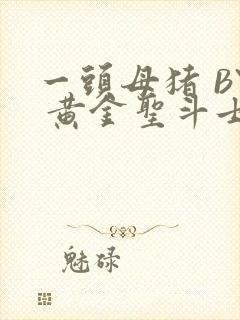 一頭母猪 BY
黄金聖斗士
魅碌